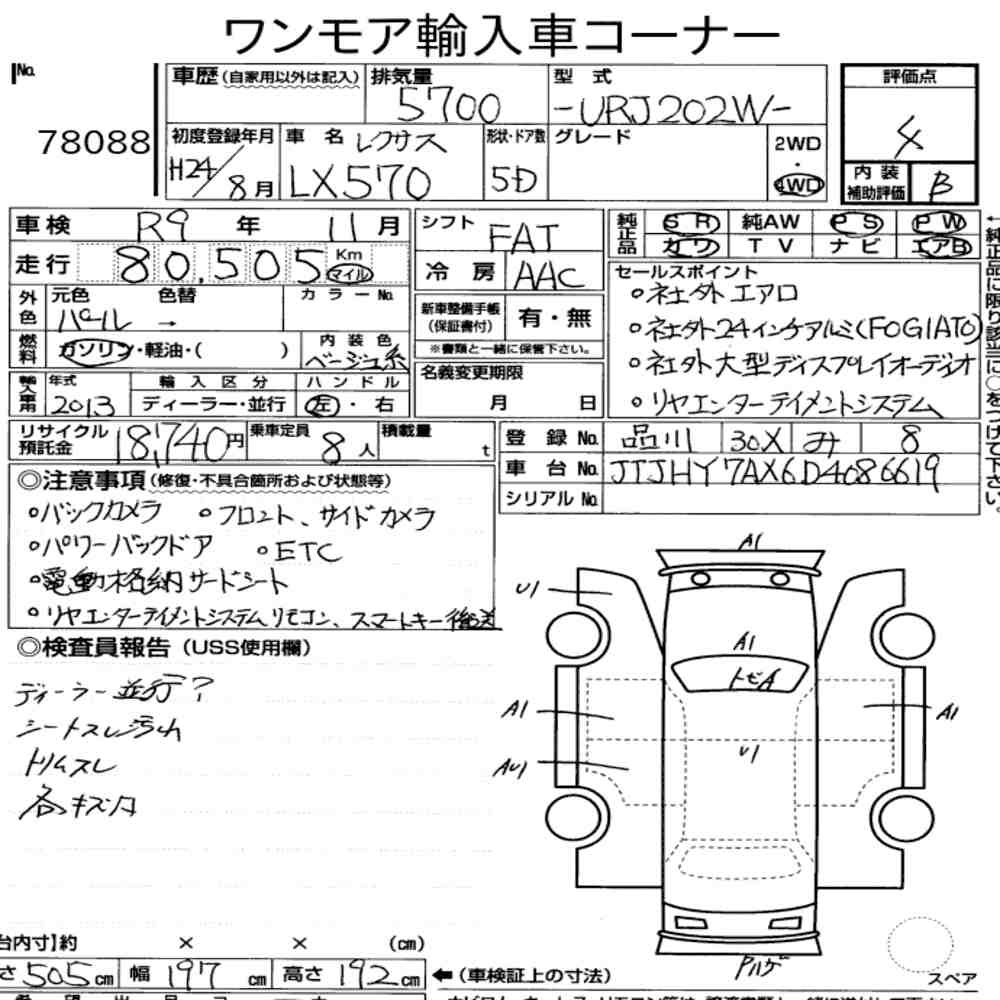 ワンモア輸入車コーナー
No.
78088
車歴(自家用以外は記入) 排気量 5700 型式 -URJ202W- 評価点 4
初度登録年月 H24/8月 車名 レクサス LX570 形状・ドア数 5D グレード 2WD・4WD 内装補助評価 B
車検 R9年 11月
走行 80,505 Km マイル
外色 元色 パール 色替 → カラーNo.
燃料 ガソリン・軽油・( ) 内装色 ベージュ系
輸入車用 年式 2013 輸入区分 ディーラー・並行 ハンドル 左・右
リサイクル預託金 18,740円 乗車定員 8人 積載量 t
シフト FAT
冷房 AAC
新車整備手帳(保証書付) 有・無
※書類と一緒に保管下さい。
名義変更期限 月 日
純正品 SR 純AW PS PW
カワ TV ナビ エアB
セールスポイント
○社外エアロ
○社外24インチアルミ(FOGIATO)
○社外大型ディスプレイオーディオ
○リヤエンターテイメントシステム
←純正品に限り該当に○をつけて下さい。
登録No. 品川 30X み 8
車台No. JTJHY7AX6D4086619
シリアルNo.
◎注意事項(修復・不具合箇所および状態等)
○バックカメラ ○フロント、サイドカメラ
○パワーバックドア ○ETC
○電動格納サードシート
○リヤエンターテイメントシステムリモコン、スマートキー後送
◎検査員報告(USS使用欄)
ディーラー並行?
シートスレ汚れ
トリムスレ
各キズ凹
A1
U1
A1
トビA
A1
A1
U1
AU1
Pハゲ
スペア
台内寸】約 × × (cm)
さ 505cm 幅 197cm 高さ 192cm
←(車検証上の寸法)